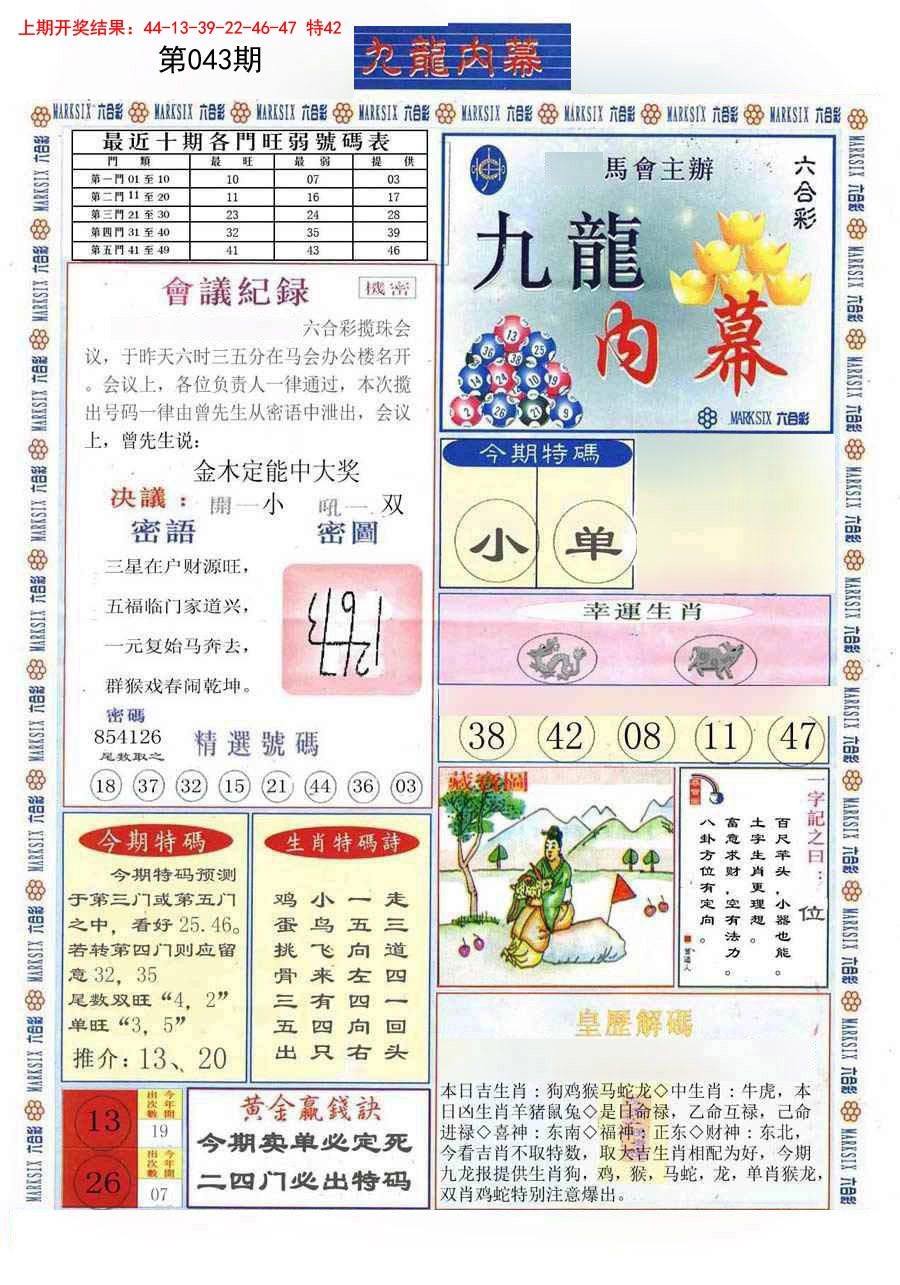 上期开奖结果: 44-13-39-22-46-47 特42
第043期
九龍内幕
MARKSIX 六合彩 MARKSIX 六合彩 MARKSIX 六合彩 MARKSIX 六合彩 MARKSIX 六合彩 MARKSIX 六合彩 MARKSIX 六合彩 MARKSIX 六合彩
最近十期各門旺弱號碼表
門 類 最 旺 最 弱 提 供
第一門 01 至 10 10 07 03
第二門 11 至 20 11 16 17
第三門 21 至 30 23 24 28
第四門 31 至 40 32 35 39
第五門 41 至 49 41 43 46
馬會主辦
六合彩
九龍
内幕
13
36 38 25
14 24 10 19
2 26 27 9
MARKSIX 六合彩
會議紀録
機密
六合彩揽珠会
议，于昨天六时三五分在马会办公楼名开
。会议上，各位负责人一律通过，本次揽
出号码一律由曾先生从密语中泄出，会议
上，曾先生说：
金木定能中大奖
决議：開一小 吼一双
密語
密圖
三星在户财源旺，
五福临门家道兴，
一元复始马奔去，
群猴戏春闹乾坤。
密碼
854126
尾数取之
精選號碼
18 37 32 15 21 44 36 03
今期特碼
小 单
幸運生肖
38 42 08 11 47
今期特碼
今期特码预测
于第三门或第五门
之中，看好 25.46。
若转第四门则应留
意 32，35
尾数双旺“4，2”
单旺“3，5”
推介：13、20
生肖特碼詩
鸡小一走
蛋鸟五三
挑飞向道
骨来左四
三有四一
五四向回
出只右头
藏寶圖
一字記之曰：位
百尺竿头，小器也能。
土字生肖更理想。
富意求财，空有法力。
八卦方位有定向。
曾道人
13
今年開
出次數
19
26
今年開
出次數
07
黄金贏錢訣
今期卖单必定死
二四门必出特码
皇歷解碼
本日吉生肖：狗鸡猴马蛇龙◇中生肖：牛虎，本
日凶生肖羊猪鼠兔◇是日命禄，乙命互禄，己命
进禄◇喜神：东南◇福神：正东◇财神：东北，
今看吉肖不取特数，取大吉生肖相配为好，今期
九龙报提供生肖狗，鸡，猴，马蛇，龙，单肖猴龙，
双肖鸡蛇特别注意爆出。